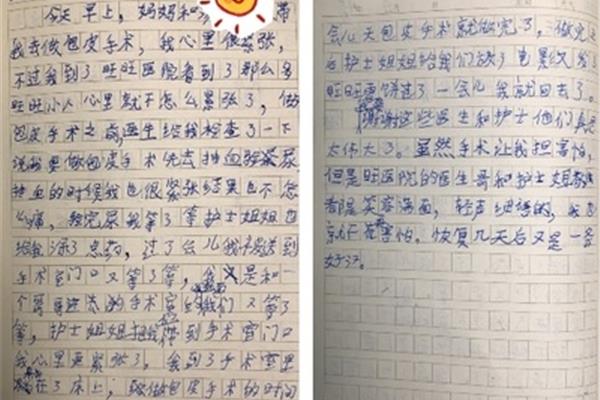 今天早上，妈妈和
带
我去做包皮手术，我心里很紧张，
不过我到了旺旺医院看到了那么多
旺旺小人心里就不怎么紧张了，做
包皮手术之前，医生给我检查了一下
说需要做包皮手术先去抽血验尿，
抽血的时候我也很紧张结果也不怎
么痛，验完尿我等了等护士姐姐
给我涂了
药，过了会儿我
到
手术室门口又等了等，我又是和一
个哥哥
手术室
我们又等了
等，护士姐姐把我带到手术室门口
我心里更紧张了，我到了手术室里
在了床上；
做包皮手术的时间
会儿天包皮手术就做完了，做完
后护士姐姐给我们
发了
旺旺雪饼过了一会儿我就回去了。
谢谢这些医生和护士他们真是
太伟大了。虽然手术让我担害怕，
但是旺医院的医生哥和护士姐
都是笑容满面，轻声细语的，我
就不害怕。恢复几天后又是一条
好汉。